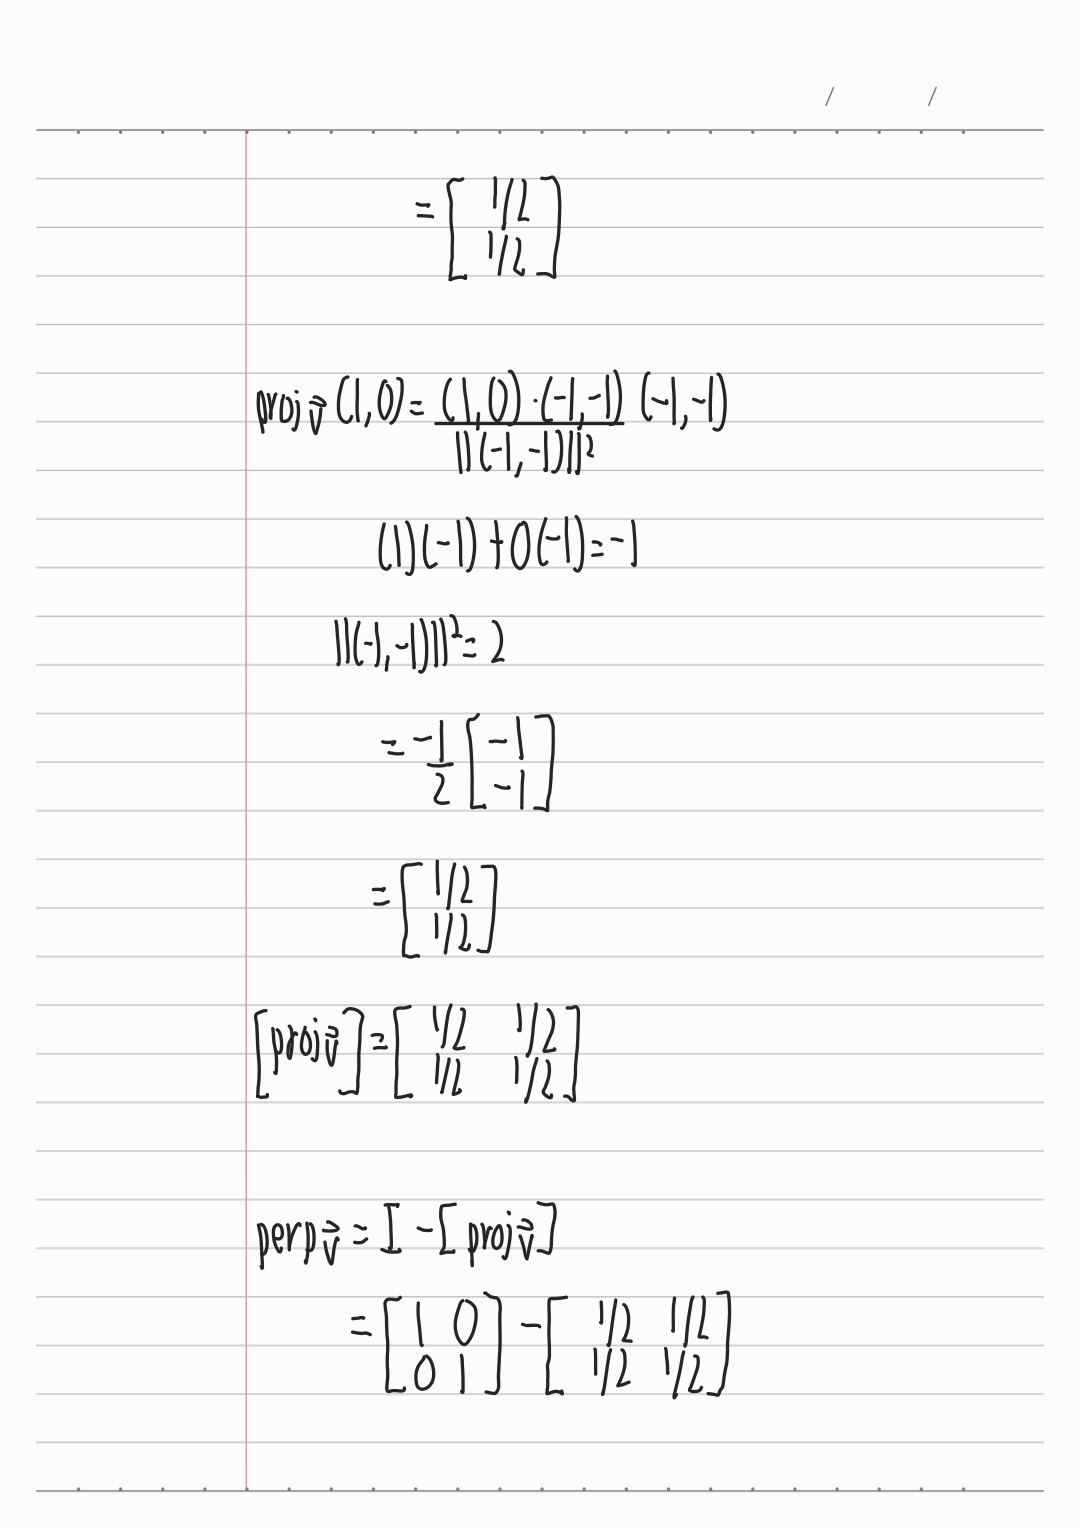 = [ 1/2
1/2 ]
proj v⃗ (1,0) = (1,0)·(-1,-1) (-1,-1)
||(-1,-1)||²
(1)(-1) + 0(-1) = -1
||(-1,-1)||² = 2
= -1/2 [ -1
-1 ]
= [ 1/2
1/2 ]
[proj v⃗] = [ 1/2 1/2
1/2 1/2 ]
perp v⃗ = I - [proj v⃗]
= [ 1 0
0 1 ] - [ 1/2 1/2
1/2 1/2 ]